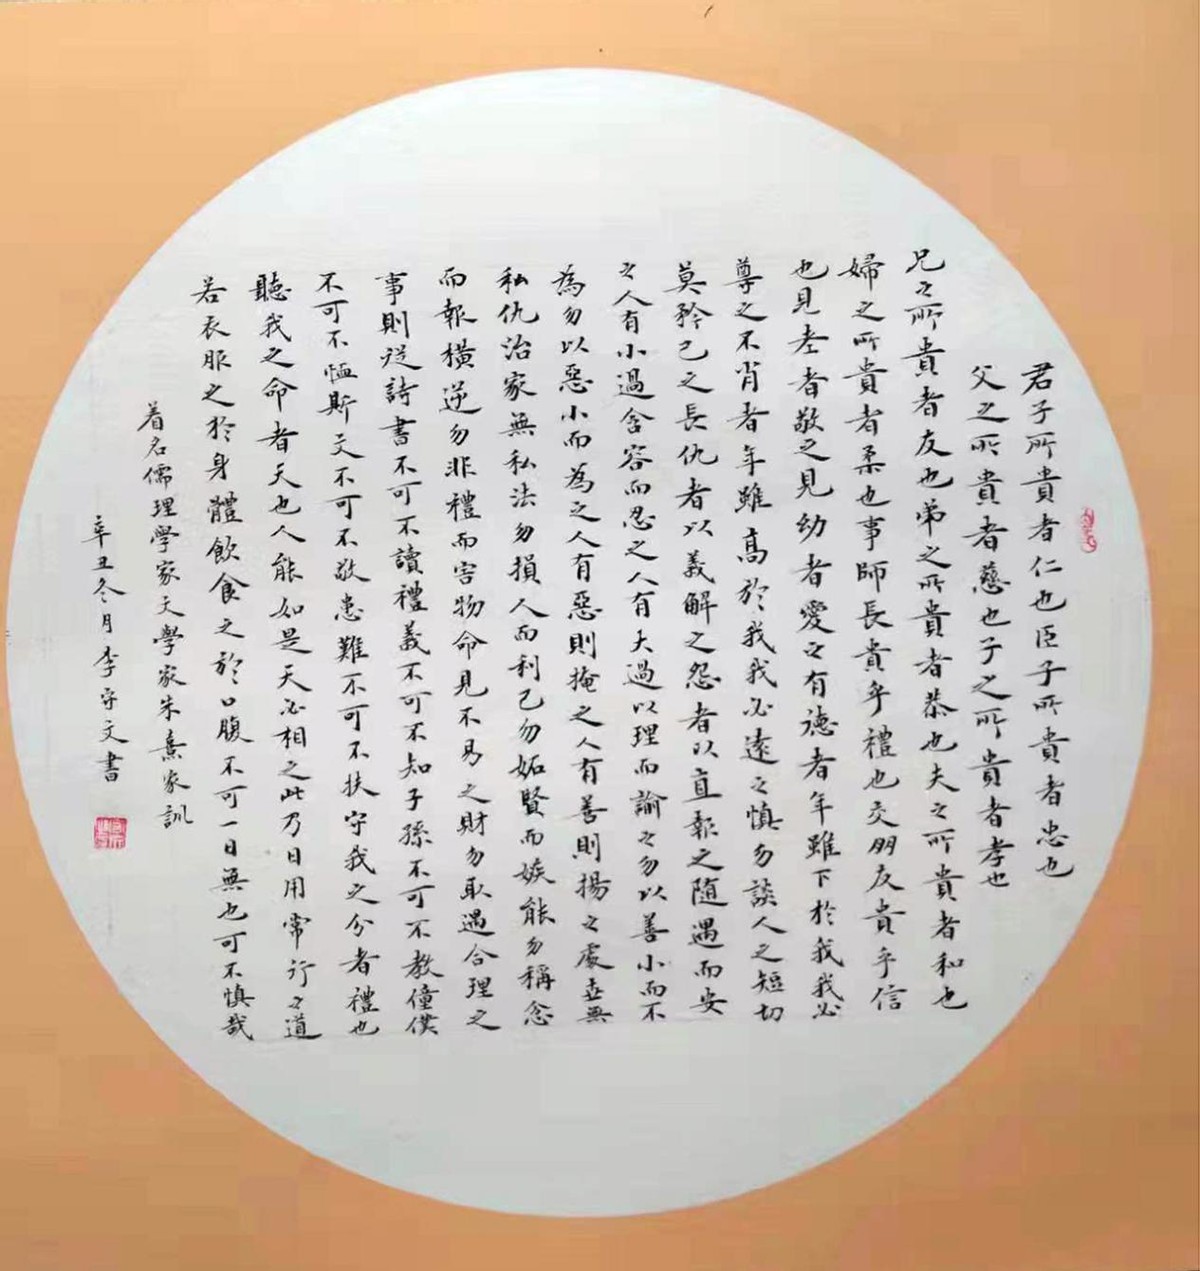 君子所貴者仁也臣子所貴者忠也
父之所貴者慈也子之所貴者孝也
兄之所貴者友也弟之所貴者恭也夫之所貴者和也
婦之所貴者柔也事師長貴乎禮也交朋友貴乎信
也見老者敬之見幼者愛之有德者年雖下於我我必
尊之不肖者年雖高於我我必遠之慎勿談人之短切
莫矜己之長仇者以義解之怨者以直報之隨遇而安
之人有小過含容而忍之人有大過以理而諭之勿以善小而不
為勿以惡小而為之人有惡則掩之人有善則揚之處世無
私仇治家無私法勿損人而利己勿妬賢而嫉能勿稱念
而報橫逆勿非禮而害物命見不易之財勿取遇合理之
事則從詩書不可不讀禮義不可不知子孫不可不教僮僕
不可不恤斯文不可不敬患難不可不扶守我之分者禮也
聽我之命者天也人能如是天必相之此乃日用常行之道
若衣服之於身體飲食之於口腹不可一日無也可不慎哉
着名儒理學家文學家朱熹家訓
辛丑冬月李守文書